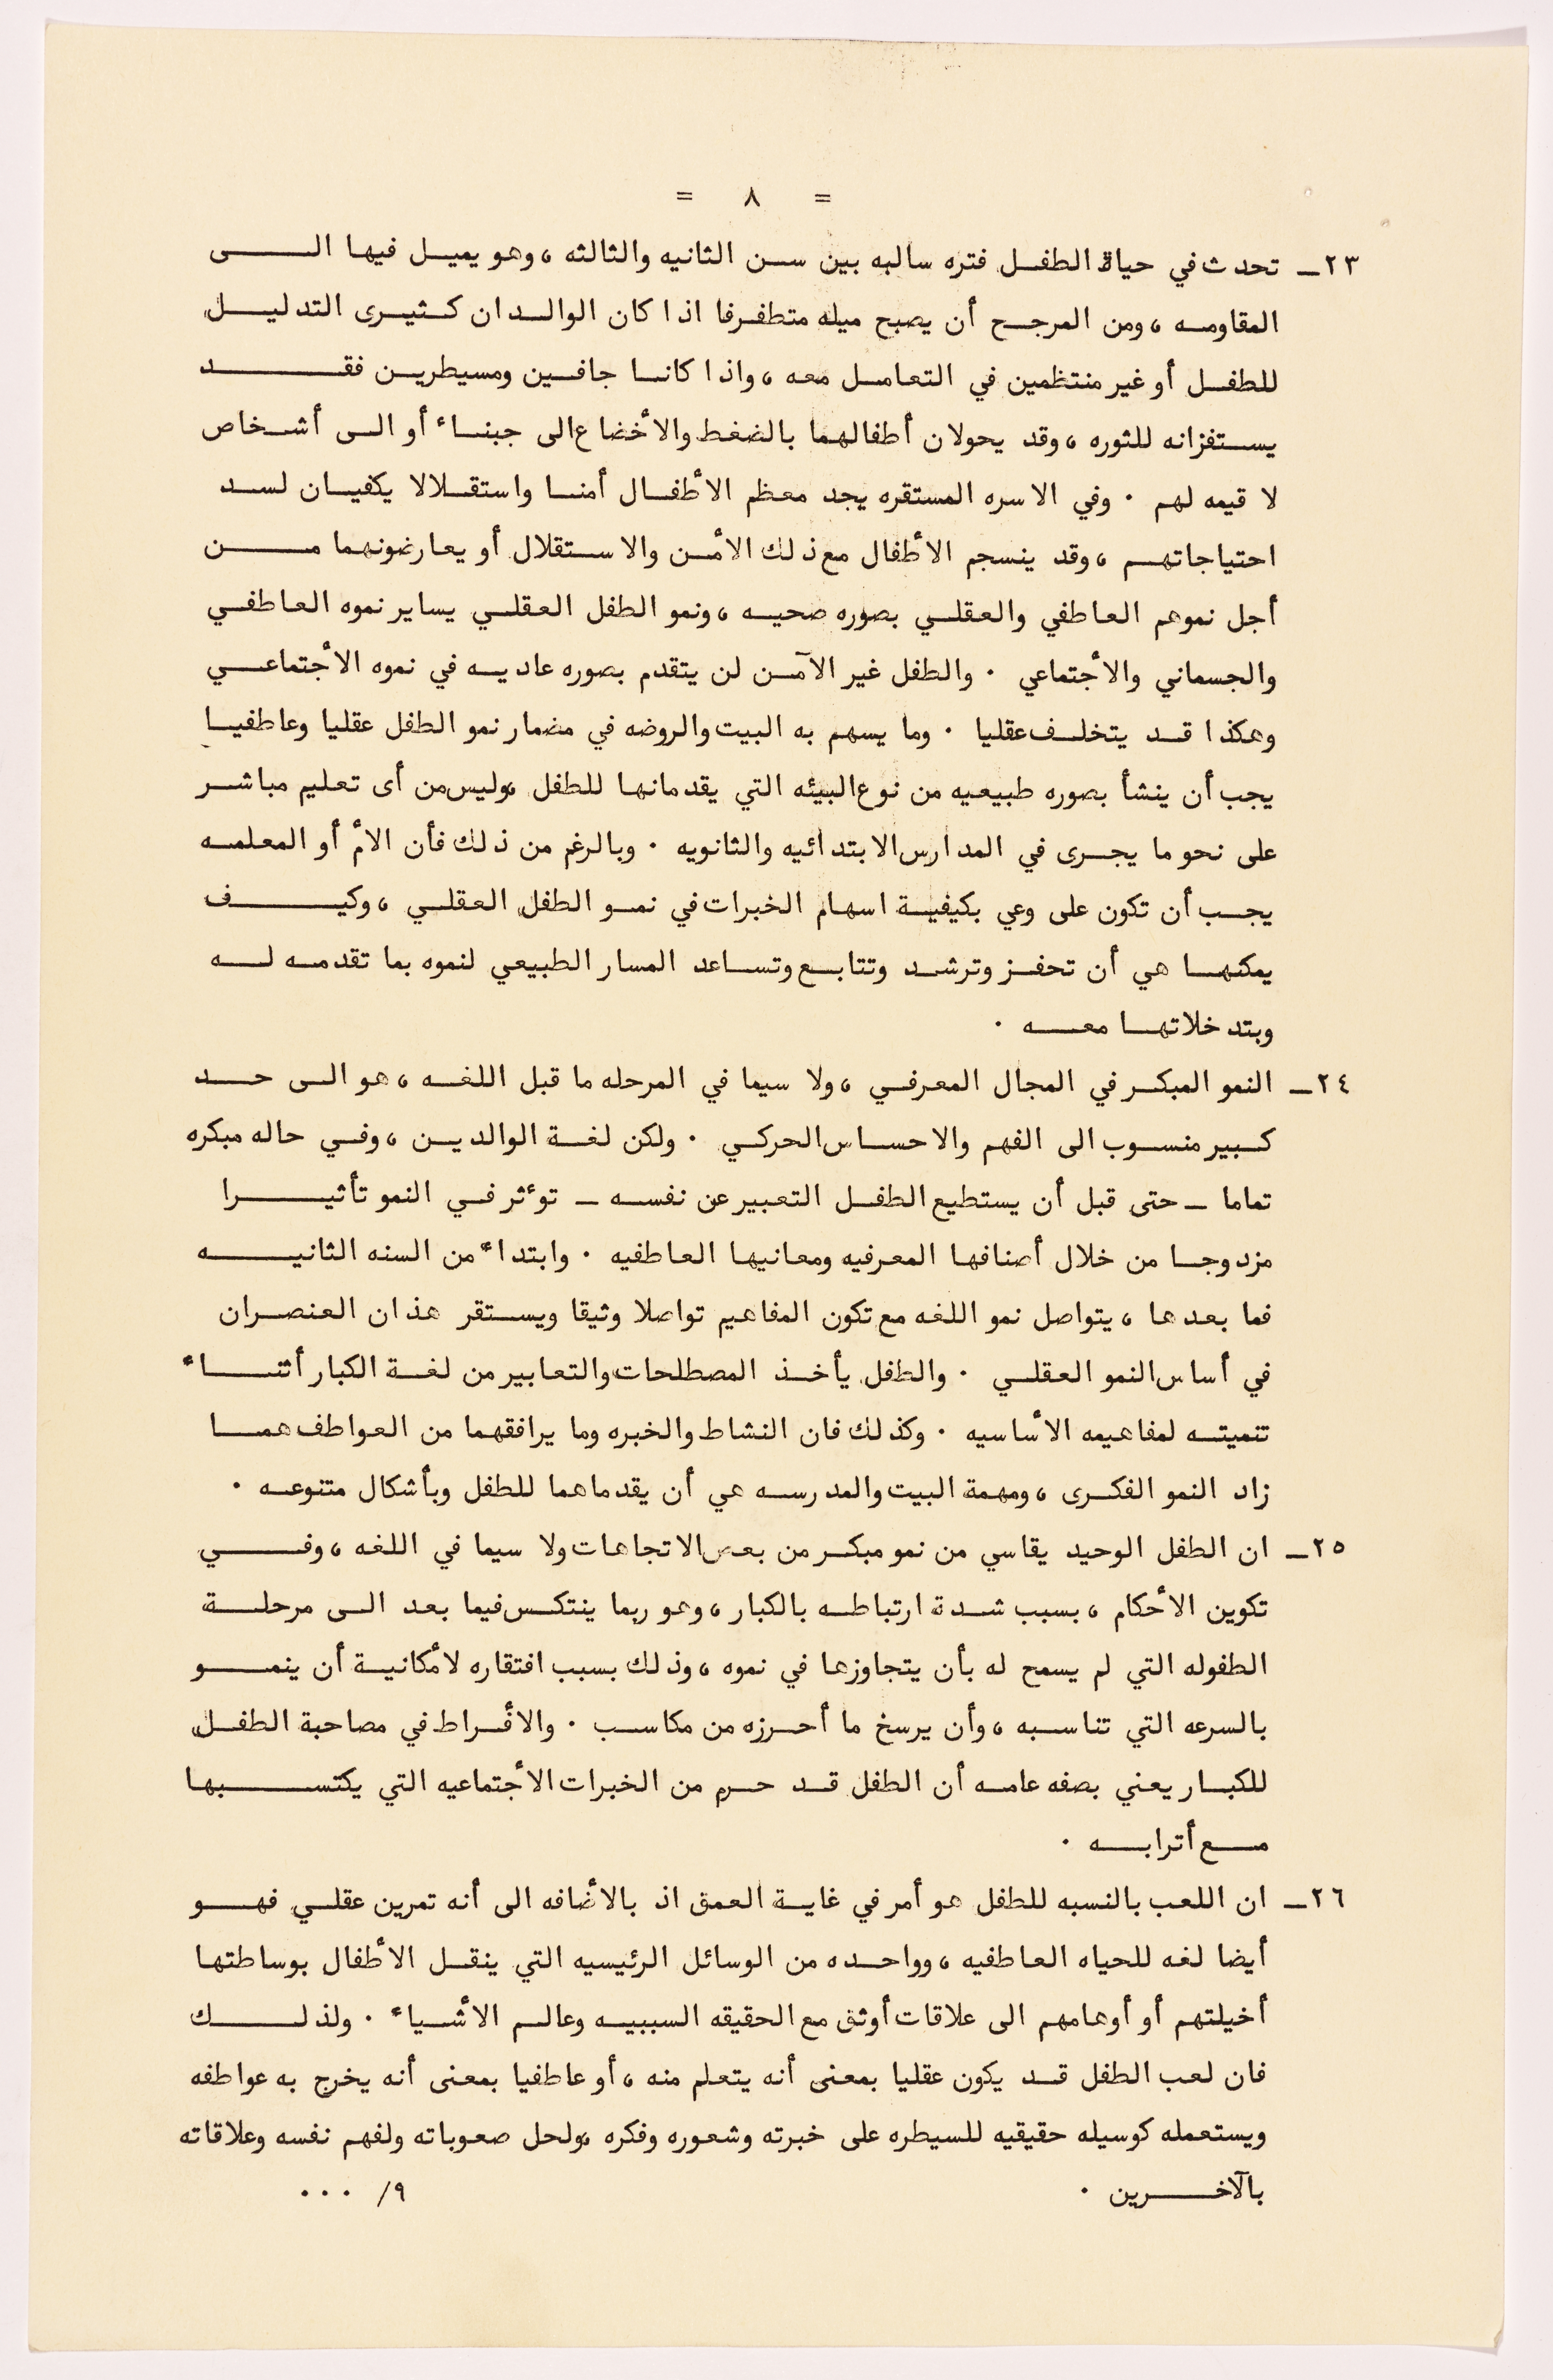 = ٨ =
٢٣ـ تحدث في حياة الطفل فتره سالبه بين سن الثانيه والثالثه ، وهو يميل فيها الى
المقاومه ، ومن المرجح أن يصبح ميله متطفرفا اذا كان الوالدان كثيرى التدليل
للطفل أو غير منتظمين في التعامل معه ، واذا كانا جافين ومسيطرين فقد
يستفزانه للثوره ، وقد يحولان أطفالهما بالضغط والأخضاع الى جبناء أو الى أشخاص
لا قيمه لهم . وفي الاسره المستقره يجد معظم الأطفال أمنا واستقلالا يكفيان لسد
احتياجاتهم ، وقد ينسجم الأطفال مع ذلك الأمن والاستقلال أو يعارضونهما من
أجل نموهم العاطفي والعقلي بصوره صحيه ، ونمو الطفل العقلي يساير نموه العاطفي
والجسماني والأجتماعي . والطفل غير الآمن لن يتقدم بصوره عاديه في نموه الأجتماعي
وهكذا قد يتخلف عقليا . وما يسهم به البيت والروضه في مضمار نمو الطفل عقليا وعاطفيا
يجب أن ينشأ بصوره طبيعيه من نوع البيئه التي يقدمانها للطفل ،وليس من أى تعليم مباشر
على نحو ما يجرى في المدارس الابتدائيه والثانويه . وبالرغم من ذلك فأن الأم أو المعلمه
يجب أن تكون على وعي بكيفية اسهام الخبرات في نمو الطفل العقلي ، وكيف
يمكنها هي أن تحفز وترشد وتتابع وتساعد المسار الطبيعي لنموه بما تقدمه له
وبتدخلاتها معه .
٢٤ـ النمو المبكر في المجال المعرفي ، ولا سيما في المرحله ما قبل اللغه ، هو الى حد
كبير منسوب الى الفهم والاحساس الحركي . ولكن لغة الوالدين ، وفي حاله مبكره
تماما ـ حتى قبل أن يستطيع الطفل التعبير عن نفسه ـ توءثر في النمو تأثيرا
مزدوجا من خلال أصنافها المعرفيه ومعانيها العاطفيه . وابتداء من السنه الثانيه
فما بعدها ، يتواصل نمو اللغه مع تكون المفاهيم تواصلا وثيقا ويستقر هذان العنصران
في أساس النمو العقلي . والطفل يأخذ المصطلحات والتعابير من لغة الكبار أثناء
تنميته لمفاهيمه الأساسيه . وكذلك فان النشاط والخبره وما يرافقهما من العواطف هما
زاد النمو الفكرى ، ومهمة البيت والمدرسه هي أن يقدماهما للطفل وبأشكال متنوعه .
٢٥ـ ان الطفل الوحيد يقاسي من نمو مبكر من بعض الاتجاهات ولا سيما في اللغه ، وفي
تكوين الأحكام ، بسبب شدة ارتباطه بالكبار ، وهو ربما ينتكس فيما بعد الى مرحلة
الطفوله التي لم يسمح له بأن يتجاوزها في نموه ، وذلك بسبب افتقاره لأمكانية أن ينمو
بالسرعه التي تناسبه ، وأن يرسخ ما أحرزه من مكاسب . والأفراط في مصاحبة الطفل
للكبار يعني بصفه عامه أن الطفل قد حرم من الخبرات الأجتماعيه التي يكتسبها
مع أترابه .
٢٦ـ ان اللعب بالنسبه للطفل هو أمر في غاية العمق اذ بالأضافه الى أنه تمرين عقلي فهو
أيضا لغه للحياه العاطفيه ، وواحده من الوسائل الرئيسيه التي ينقل الأطفال بوساطتها
أخيلتهم أو أوهامهم الى علاقات أوثق مع الحقيقه السببيه وعالم الأشياء . ولذلك
فان لعب الطفل قد يكون عقليا بمعنى أنه يتعلم منه ، أو عاطفيا بمعنى أنه يخرج به عواطفه
ويستعمله كوسيله حقيقيه للسيطره على خبرته وشعوره وفكره ،ولحل صعوباته ولفهم نفسه وعلاقاته
بالآخرين . ٩/ ...